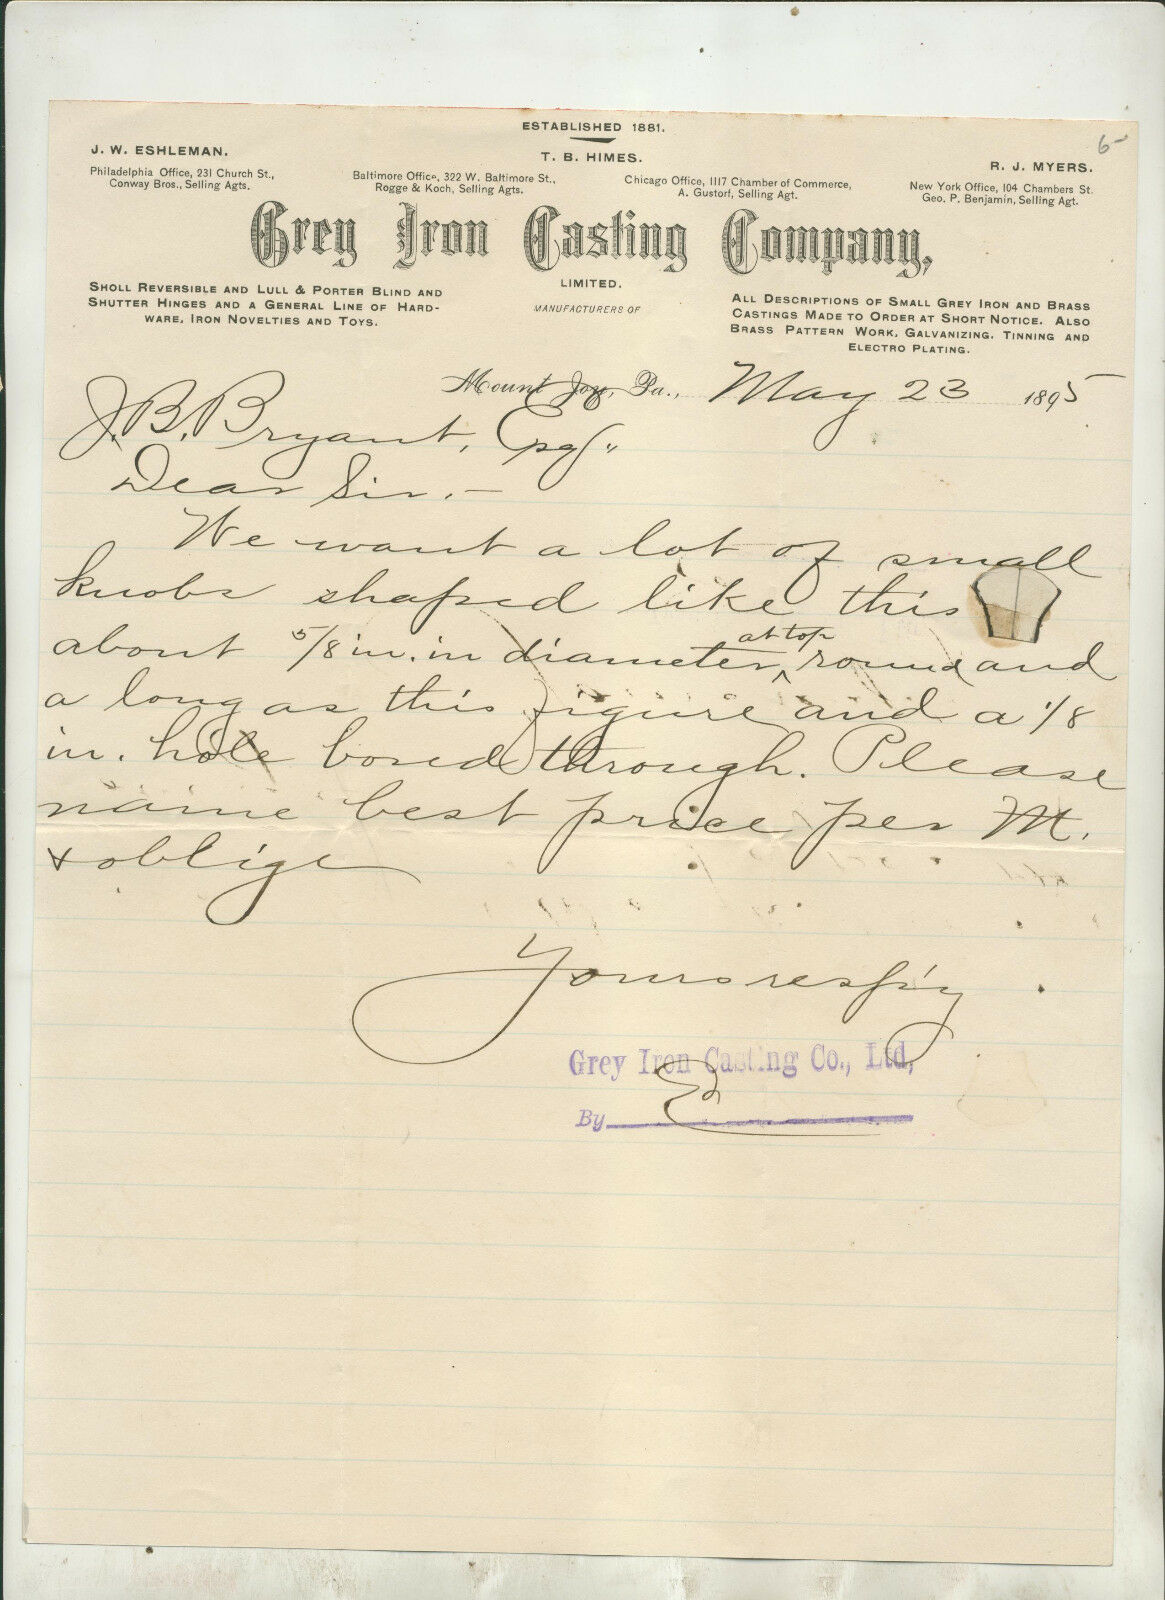 ESTABLISHED 1881.
J. W. ESHLEMAN.
T. B. HIMES.
R. J. MYERS.
6-
Philadelphia Office, 231 Church St.,
Conway Bros., Selling Agts.
Baltimore Office, 322 W. Baltimore St.,
Rogge & Koch, Selling Agts.
Chicago Office, 1117 Chamber of Commerce,
A. Gustorf, Selling Agt.
New York Office, 104 Chambers St.
Geo. P. Benjamin, Selling Agt.
Grey Iron Casting Company,
LIMITED.
MANUFACTURERS OF
SHOLL REVERSIBLE AND LULL & PORTER BLIND AND
SHUTTER HINGES AND A GENERAL LINE OF HARD-
WARE, IRON NOVELTIES AND TOYS.
ALL DESCRIPTIONS OF SMALL GREY IRON AND BRASS
CASTINGS MADE TO ORDER AT SHORT NOTICE. ALSO
BRASS PATTERN WORK, GALVANIZING, TINNING AND
ELECTRO PLATING.
Mount Joy, Pa., May 23 1895
J. B. Bryant, Esq.
Dear Sir,—
We want a lot of small
knobs shaped like this
about 5/8 in. in diameter at top, round and
a long as this figure and a 1/8
in. hole bored through. Please
name best price per M.
& oblige
Yours resp'y
Grey Iron Casting Co., Ltd,
By E